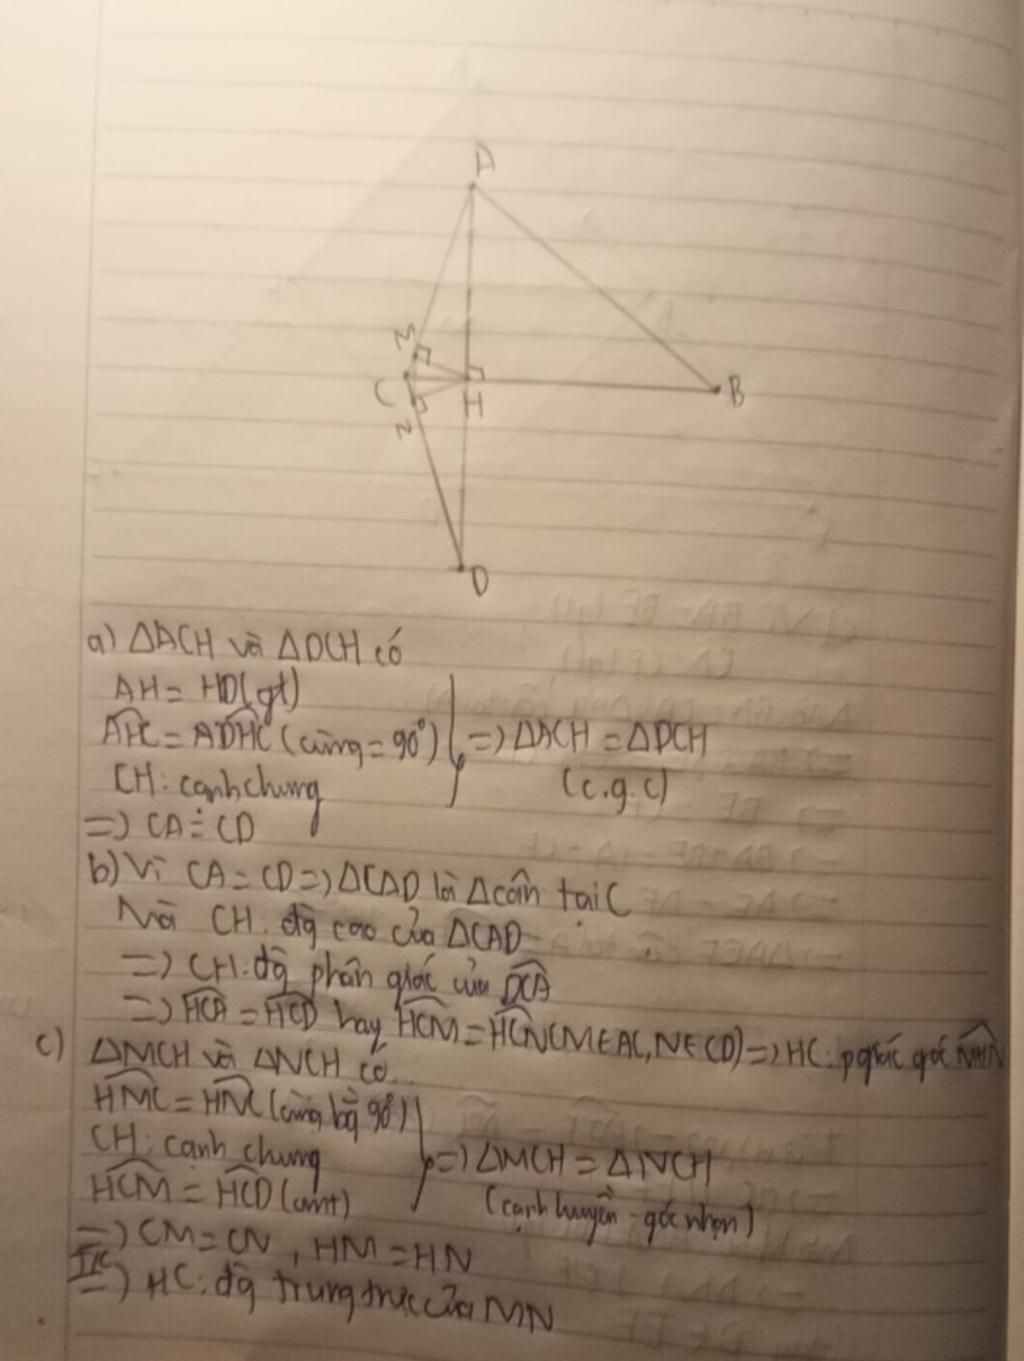 A
M
C
H
B
N
D
a) ΔACH và ΔDCH có
AH = HD(gt)
AHC = ADHC (cùng = 90°) => ΔACH = ΔDCH
CH: cạnh chung (c.g.c)
=> CA = CD
b) Vì CA = CD => ΔCAD là Δ cân tại C
Mà CH: đg cao của ΔCAD
=> CH: đg phân giác của DCA
=> HCA = HCD hay HCM = HCN (M∈AC, N∈CD) => HC: pgiác góc MHN
c) ΔMCH và ΔNCH có
HMC = HNC (cùng bg 90°)
CH: cạnh chung => ΔMCH = ΔNCH
HCM = HCD (cmt) (cạnh huyền - góc nhọn)
=> CM = CN, HM = HN
T/C
=> HC: đg trung trực của MN